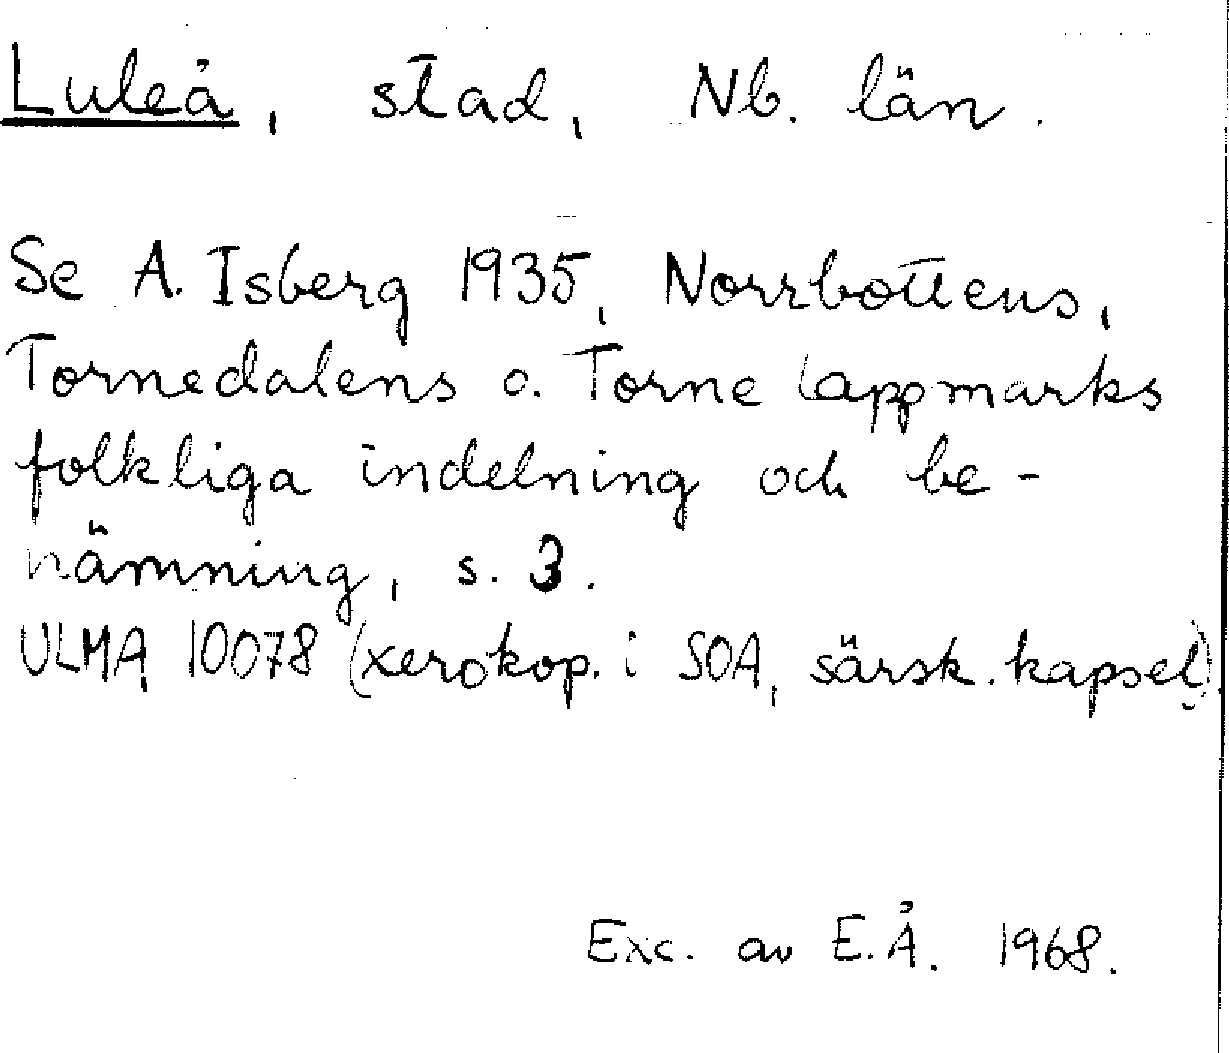 Luleå, stad, Nb. län.
Se A. Isberg 1935, Norrbottens,
Tornedalens o. Torne lappmarks
folkliga indelning och be-
nämning, s. 3.
ULMA 10078 (xerokop. i SOA, särsk. kapsel).
Exc. av E.Å. 1968.